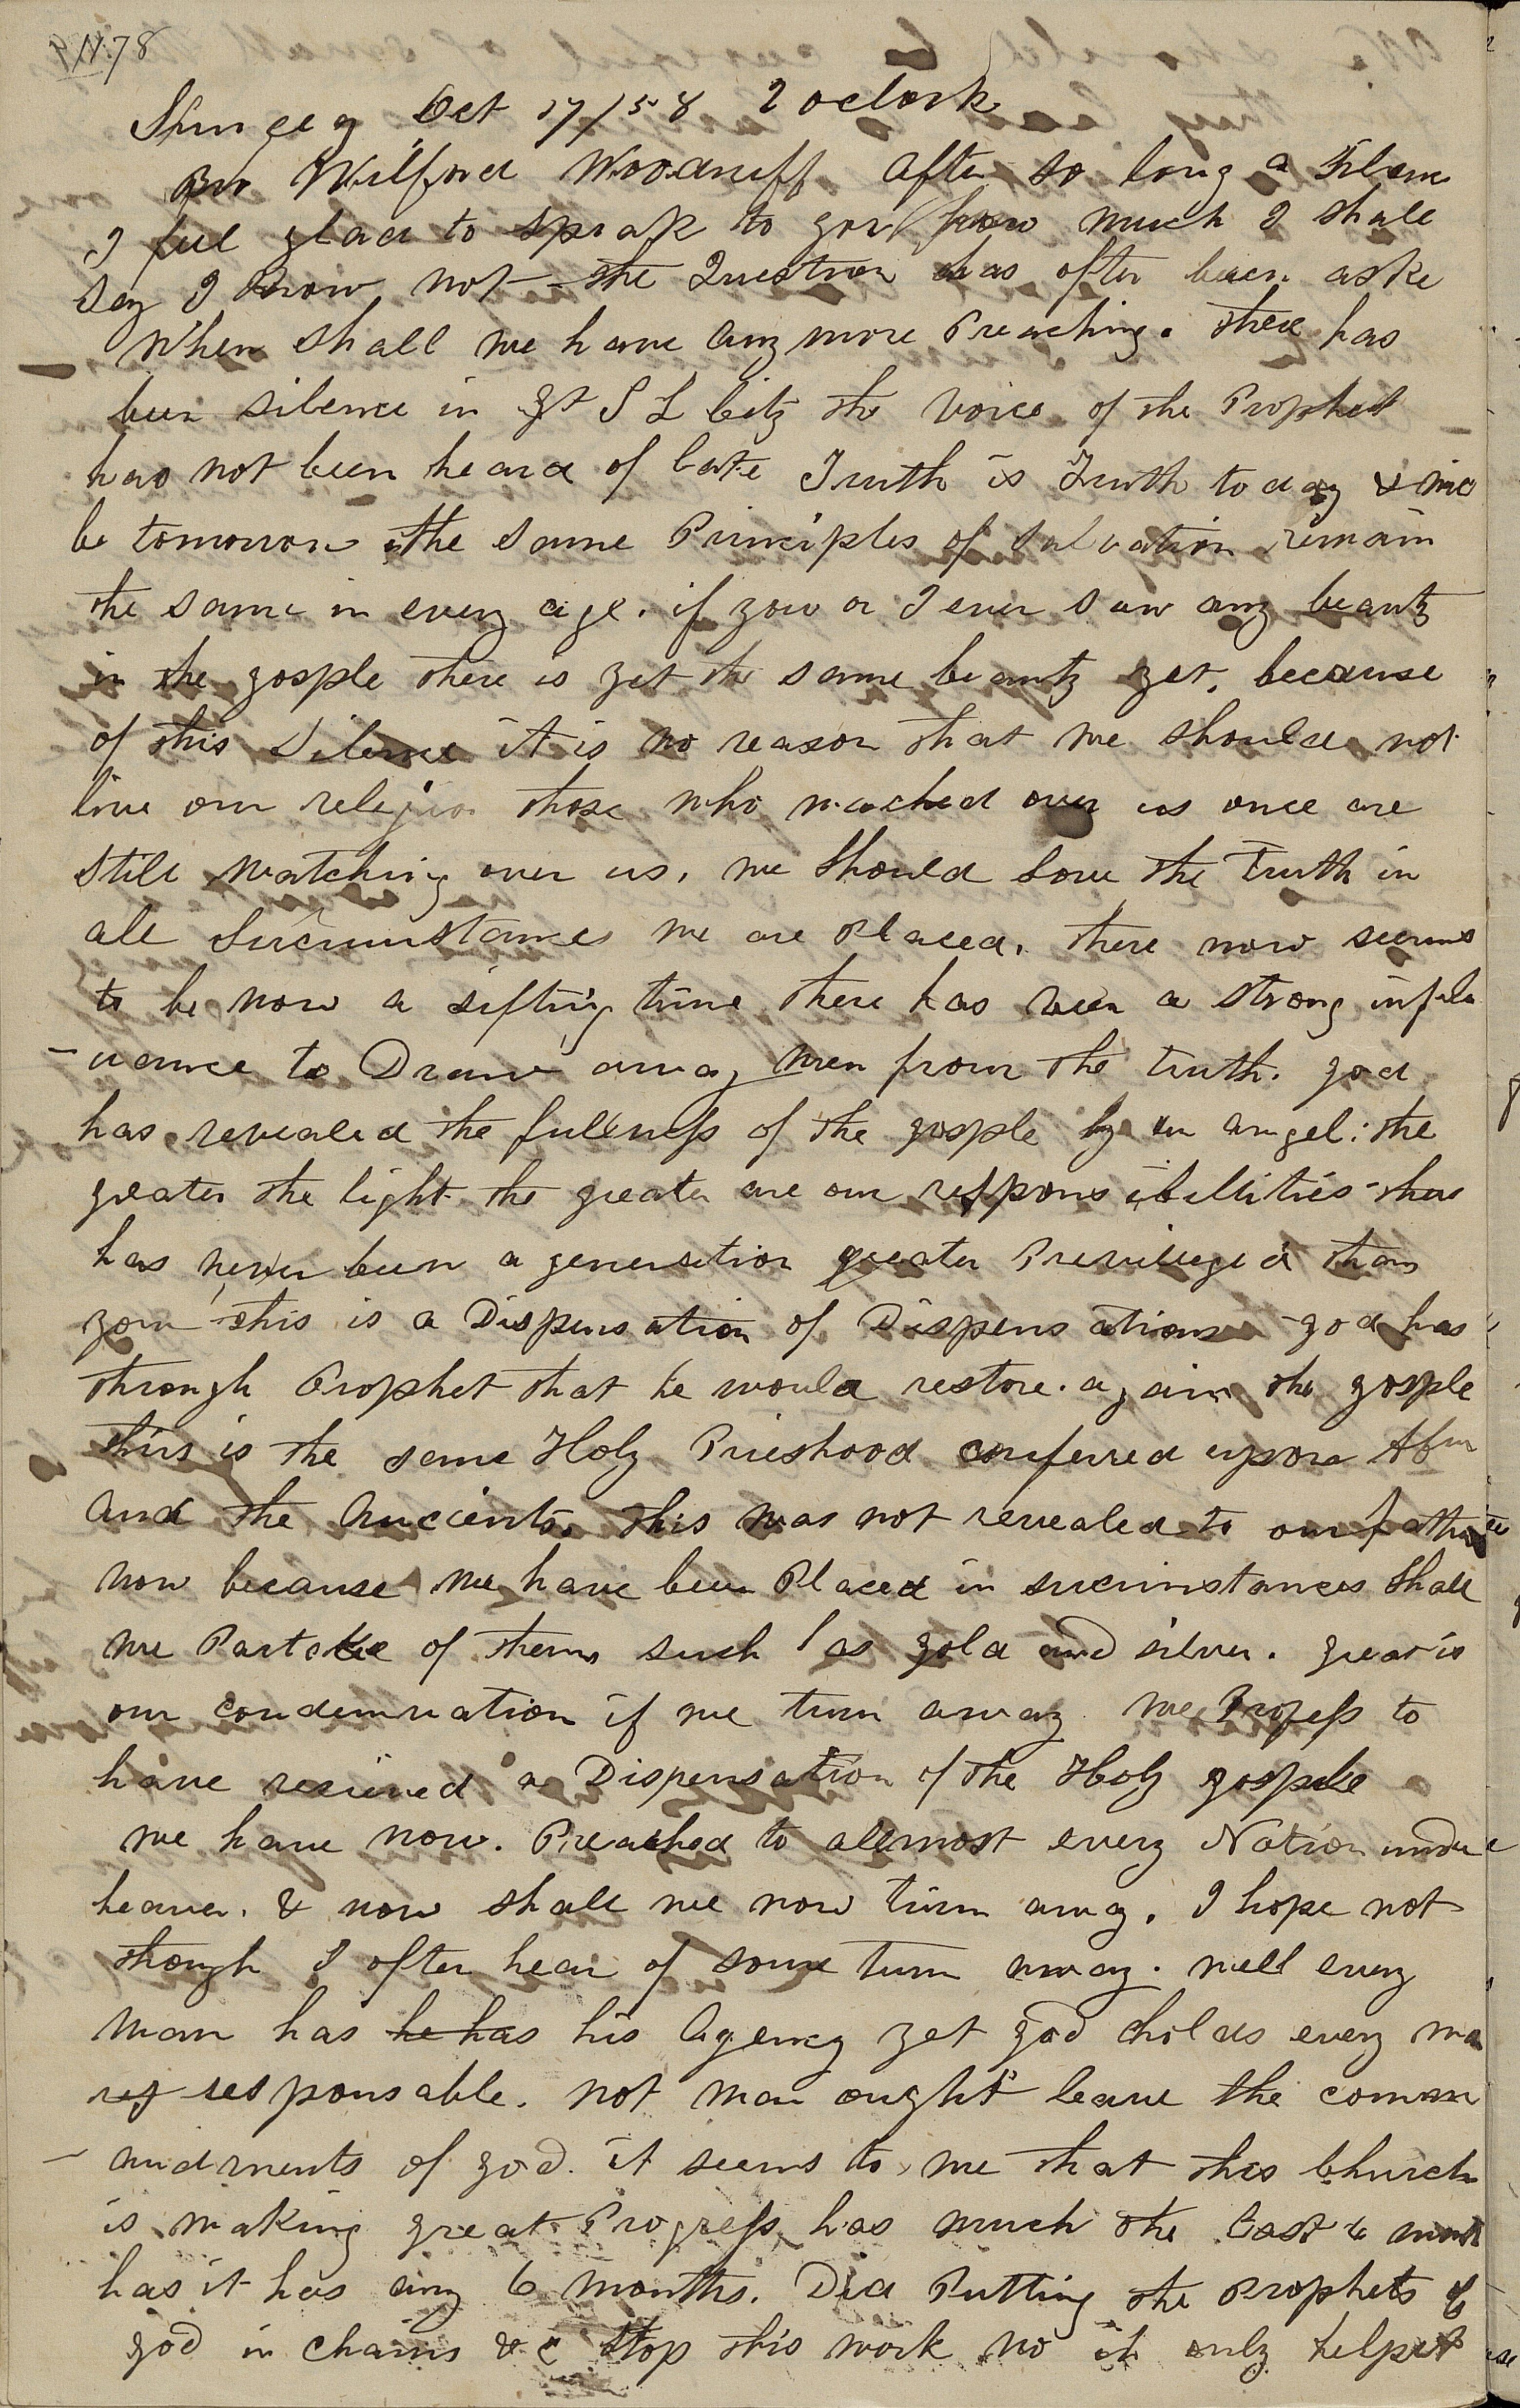 11.78
Oct 17/58 2 oclock
Bro Wilford Woodruff after so long a Silenc
I feel glad to speak to you how much I shall
Say I know not the Question has often been aske
When shall we have any more Preaching. there has
been silence in Gt S L City the voice of the Prophet
has not been heard of late Truth is Truth to day &
be tomorrow the same Principles of salvation remain
the same in every age. if you or I ever saw any beauty
in the gosple there is yet the same beauty yet. because
of this Silence it is no reason that we should not
live our religion those who watched over us once are
still watching over us. we should love the truth in
all Sircumstances we are Placed. there now seems
to be now a sifting time there has been a strong influ
-uance to Draw away men from the truth. god
has revealed the fullness of the gosple by an angel: the
greater the light the greater are our responsibillities
has never been a generation greater Previleged than
your this is a Dispensation of Dispensations god has
through Prophet that he would restore again the gosple
this is the same Holy Prieshood conferred upon
and the Ancients. this was not revealed to our fathers
now because we have been Placed in sircumstances shall
we Partake of them such as gold and silver. great is
our condemnation if we turn away we Profess to
have recieved a Dispensation of the Holy gosple
we have now. Preached to allmost every Nation under
heaven. & now shall we now turn away. I hope not
though I often hear of some turn away. well every
man has he has his Agency yet god holds every ma
responsable. not man ought leave the comm
- andments of god. it seems to me that this Church
is making great Progress has much the last 6
has it has any 6 months. Did Putting the Prophets of
god in chains &c stop this work no it only helped